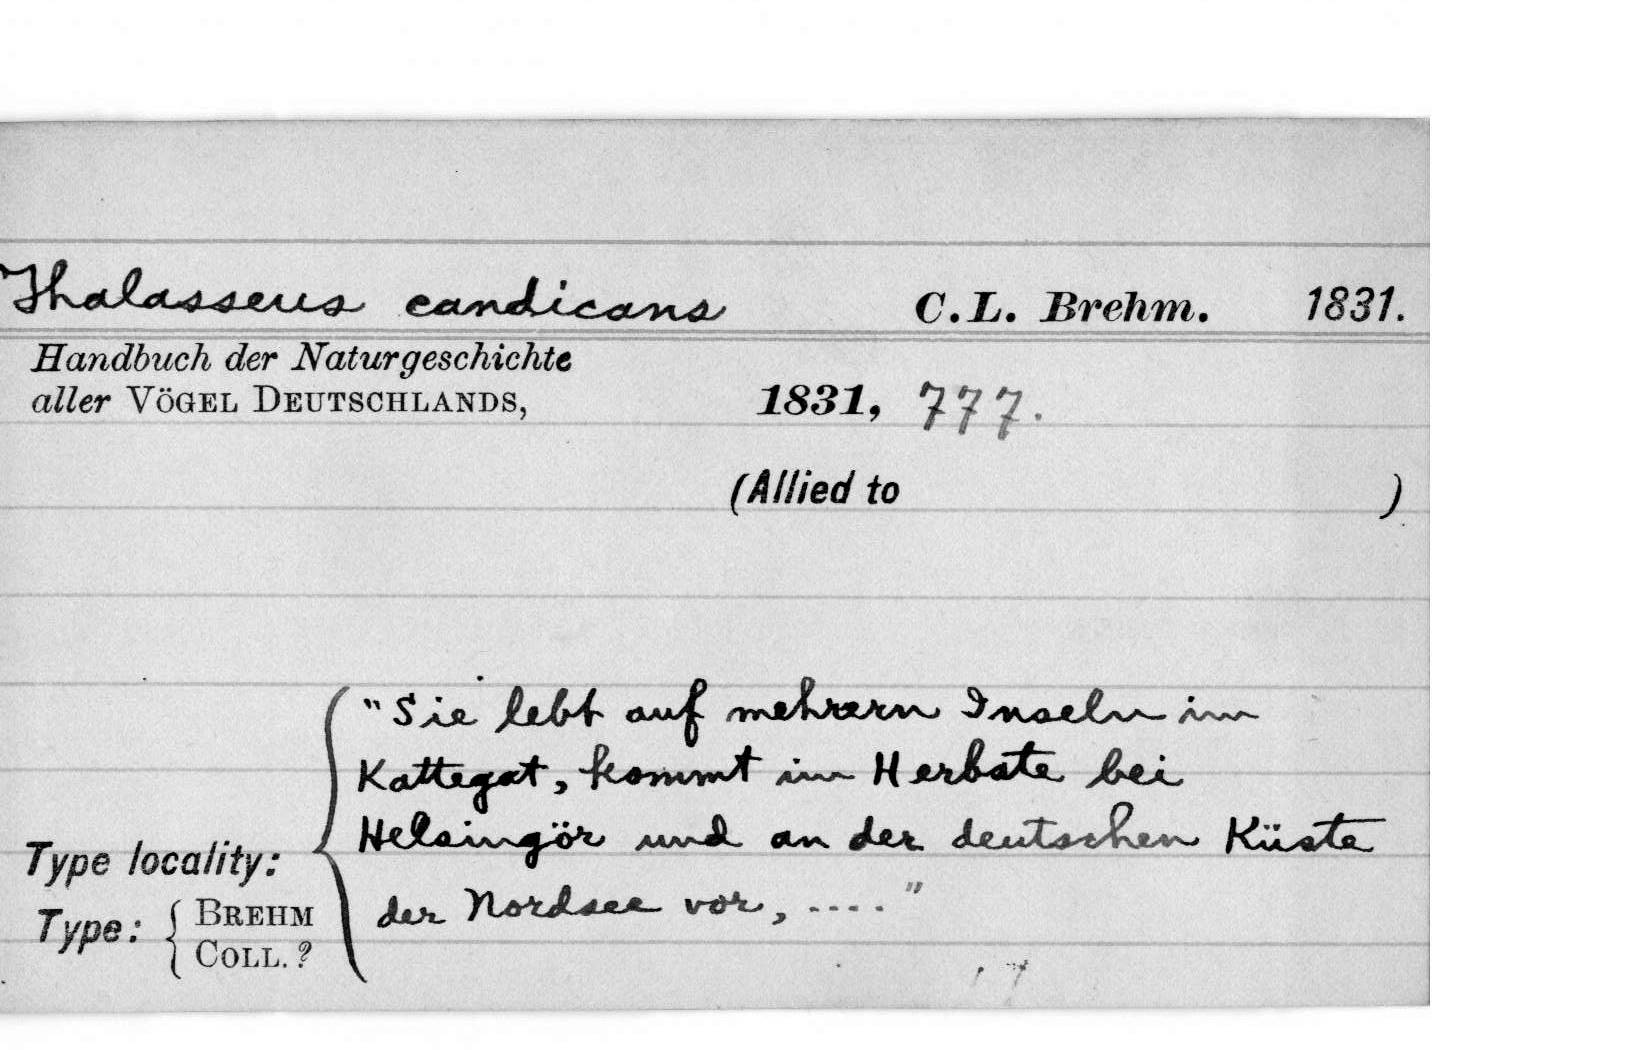 Thalasseus candicans C.L. Brehm. 1831.
Handbuch der Naturgeschichte
aller VÖGEL DEUTSCHLANDS, 1831, 777.
(Allied to )
"Sie lebt auf mehrern Inseln im
Kattegat, kommt im Herbste bei
Helsingör und an der deutschen Küste
Type locality:
der Nordsee vor, ...."
Type: { BREHM
COLL. ?